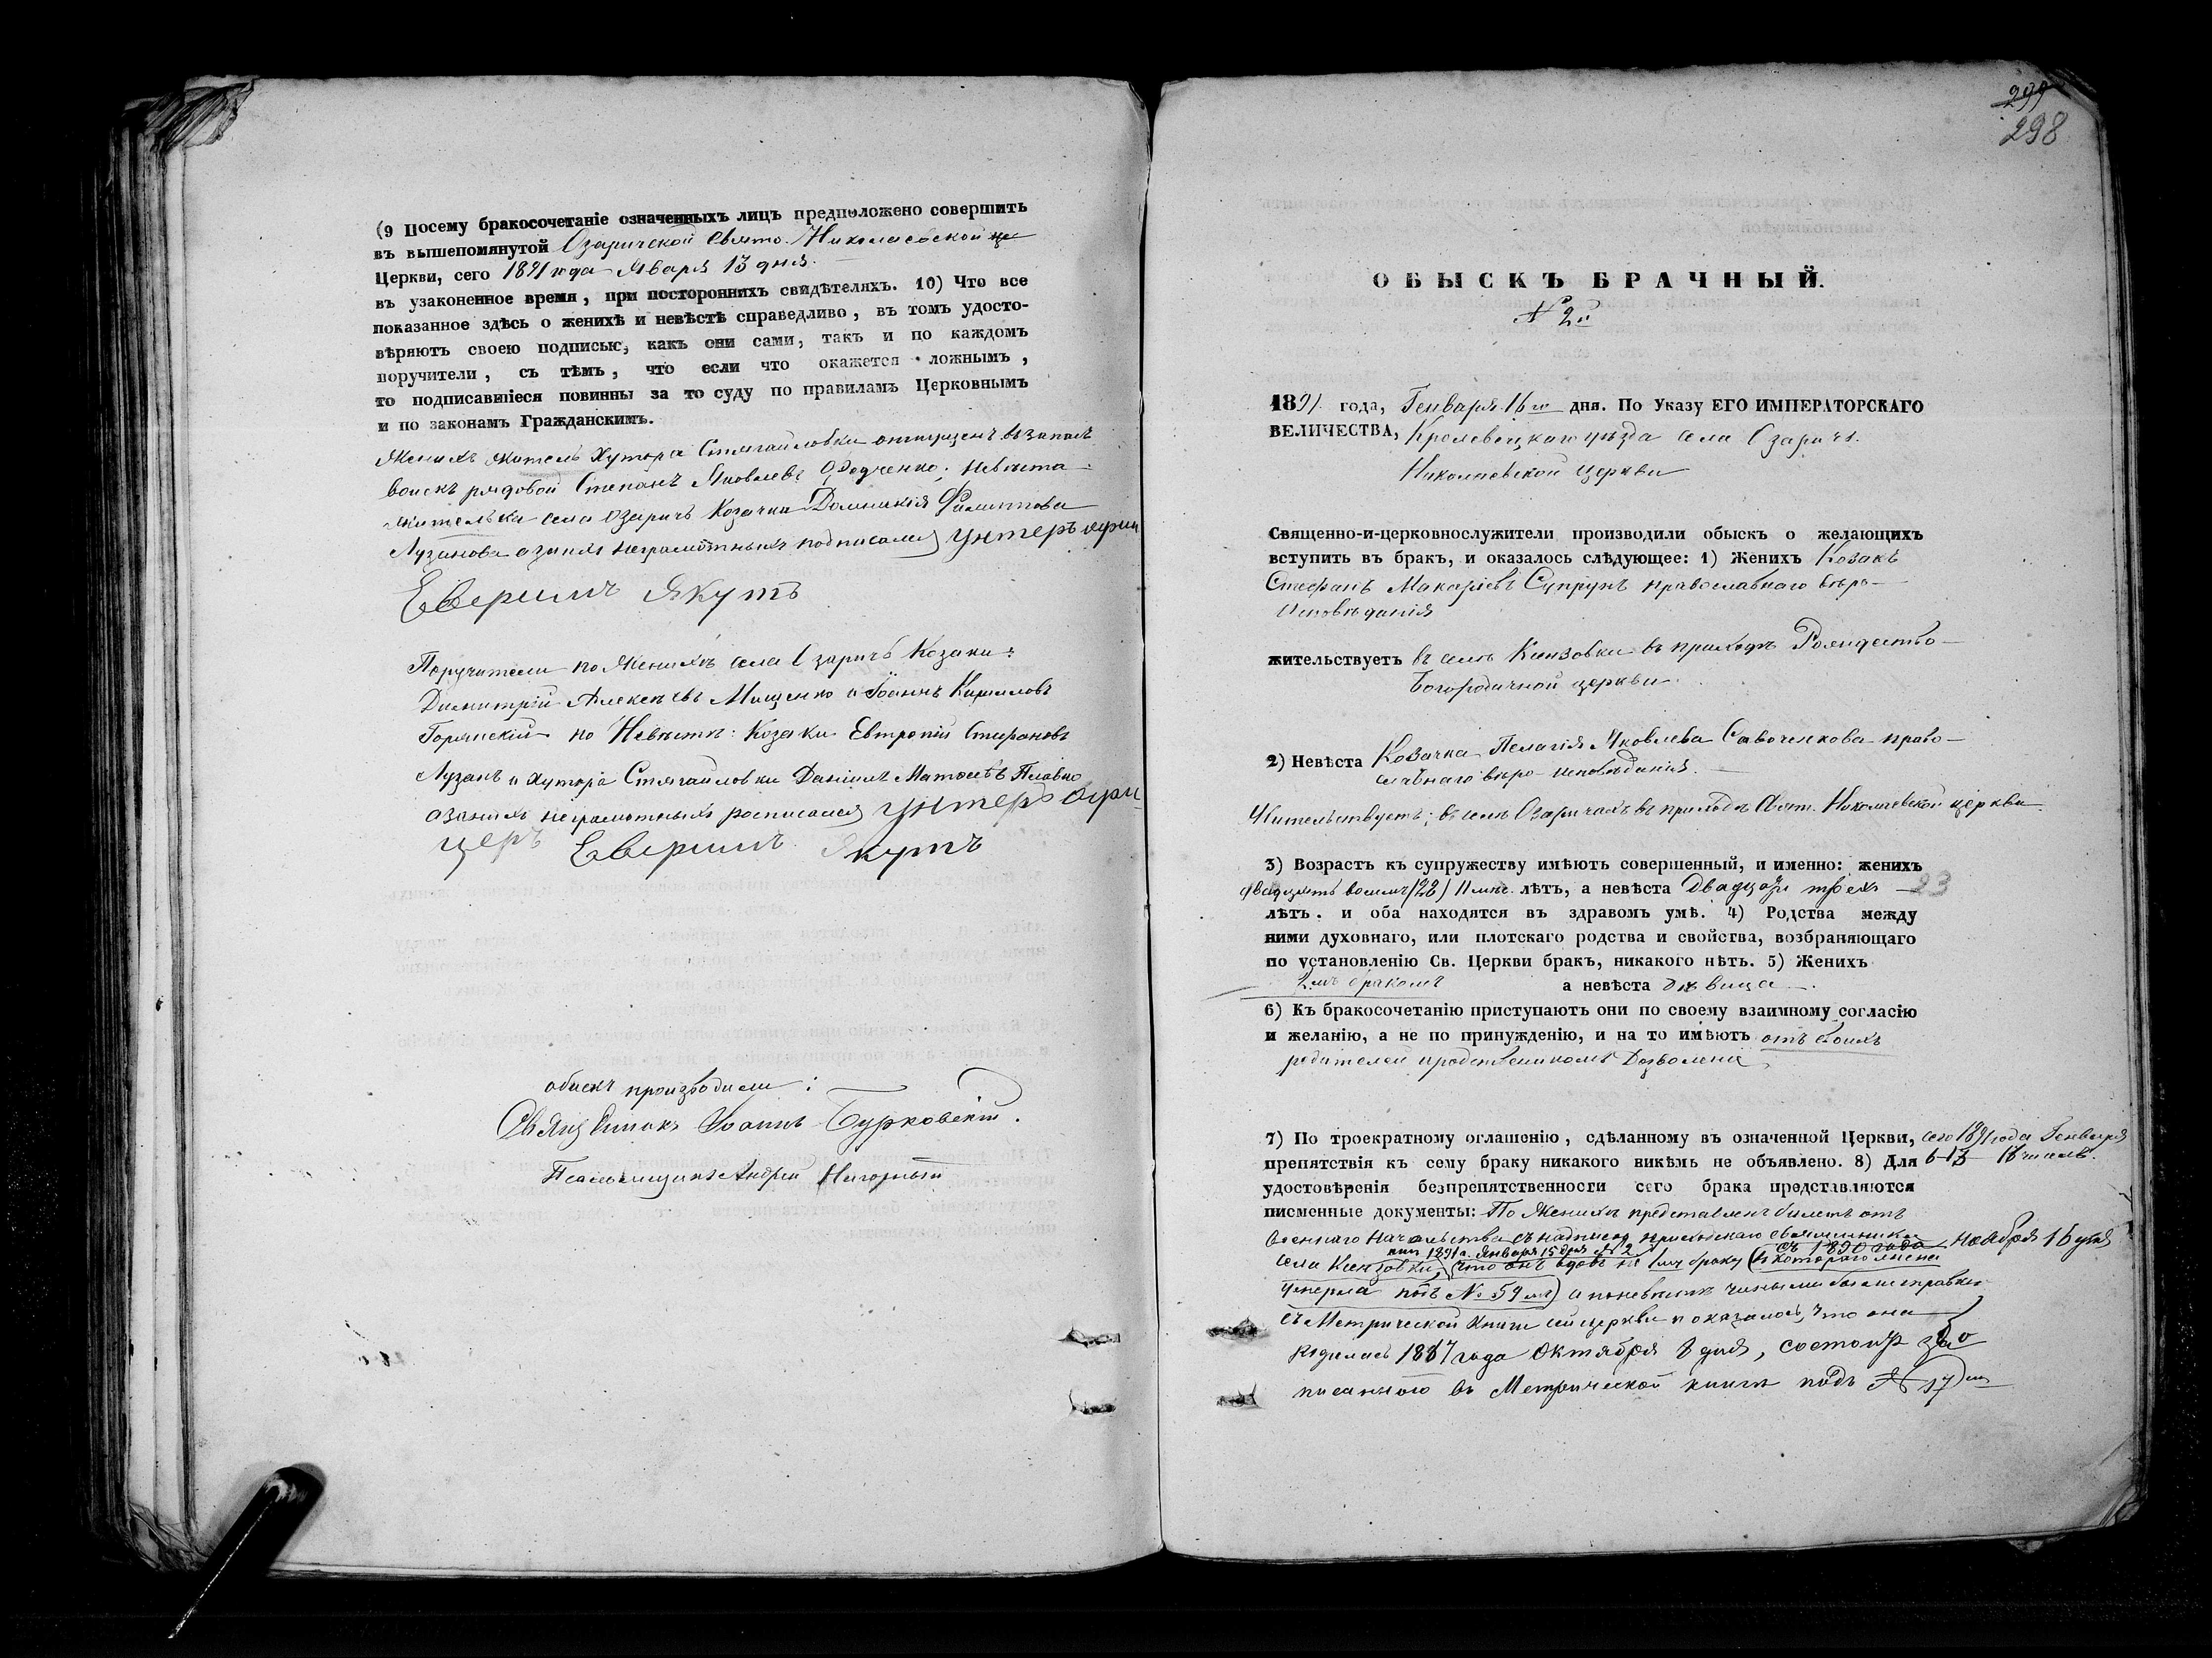 (9 Посему бракосочетаніе означенныхъ лицъ предположено совершить
въ вышепомянутой Озаричской Свято-Николаевской це
Церкви, сего 1891 года Января 13 дня.
въ узаконенное время, при постороннихъ свидѣтеляхъ. 10) Что все
показанное здѣсь о женихѣ и невѣстѣ справедливо, въ томъ удосто-
вѣряютъ своею подписью, какъ они сами, такъ и по каждомъ
поручители, съ тѣмъ, что если что окажется ложнымъ,
то подписавшіеся повинны за то суду по правиламъ Церковнымъ
и по законамъ Гражданскимъ.
Женихъ житель Хутора Стягайловки отпущенъ въ запасъ
войскъ рядовой Степанъ Яковлевъ невѣста
жителька села Озаричъ Козачка Домникія Филиппова
Лузанова а за нихъ неграмотныхъ подписался Унтеръ офи
Еверимъ Якутъ
Поручители по Женихѣ села Озаричъ Козаки:
Димитрій Алексѣевъ Мищенко и Іоаннъ Кирилловъ
Горянскій по Невѣстѣ: Козаки Евтропій Стефановъ
Лузанъ и хутора Стягайловки Даніилъ Матвѣевъ
а за нихъ неграмотныхъ росписался Унтеръ офи
церъ Еверимъ Якутъ
обыскъ производили:
Священникъ Іоаннъ Бурковскій.
Псаломщикъ Андрей Нагорный
299
298
ОБЫСКЪ БРАЧНЫЙ.
№ 2й
1891 года, Генваря 16го дня. По Указу ЕГО ИМПЕРАТОРСКАГО
ВЕЛИЧЕСТВА, Кролевецкаго уѣзда села Озаричъ
Николаевской Церкви
Священно-и-церковнослужители производили обыскъ о желающихъ
вступить въ бракъ, и оказалось слѣдующее: 1) Женихъ Козакъ
Стефанъ Макаріевъ Супрунъ православнаго вѣро-
исповѣданія
жительствуетъ въ селѣ въ приходѣ Рождество-
Богородичной церкви.
2) Невѣста Козачка Пелагія Яковлева Савоченкова право-
славнаго вѣро-исповѣданія.
Жительствуетъ: въ селѣ Озаричахъ въ приходѣ Свят. Николаевской церкви.
3) Возрастъ къ супружеству имѣютъ совершенный, и именно: женихъ
двадцать восемь (28) 11 мѣс. лѣтъ, а невѣста двадцати трехъ 23
лѣтъ. и оба находятся въ здравомъ умѣ. 4) Родства между
ними духовнаго, или плотскаго родства и свойства, возбраняющаго
по установленію Св. Церкви бракъ, никакого нѣтъ. 5) Женихъ
2мъ бракомъ а невѣста дѣвица
6) Къ бракосочетанію приступаютъ они по своему взаимному согласію
и желанію, а не по принужденію, и на то имѣютъ отъ своихъ
родителей и родственниковъ дозволеніе
7) По троекратному оглашенію, сдѣланному въ означенной Церкви, сего 1891 года Генваря
препятствія къ сему браку никакого никѣмь не объявлено. 8) Для 6-13 16 числъ.
удостовѣренія безпрепятственности сего брака представляются
писменные документы: По Женихѣ представленъ билетъ отъ
военнаго Начальства съ надписею приходскаго священника
съ 1890 года ноября 16 дня
1891 г. Января 15 дня № 2
села что онъ вдовъ по 1мъ браку
умерла подъ № 59 а по невѣстѣ
съ Метрической Книги сей церкви и оказалось, что она
родилась 1867 года Октября 8 дня, состоитъ за-
писанною въ Метрической книгѣ подъ № 17